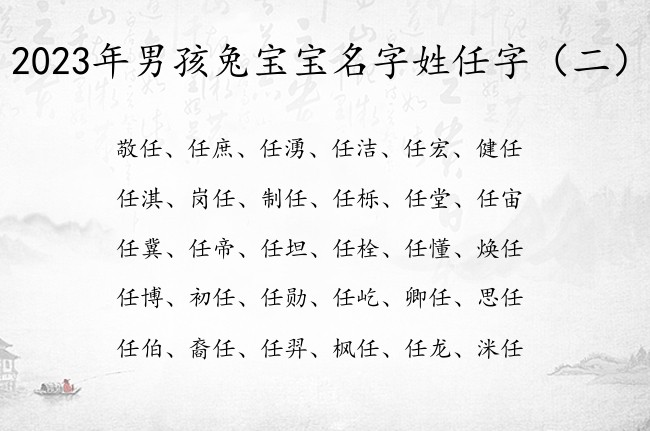 2023年男孩兔宝宝名字姓任字（二）
敬任、任庶、任湧、任洁、任宏、健任
任淇、岗任、制任、任栎、任堂、任宙
任冀、任帝、任坦、任栓、任懂、焕任
任博、初任、任勋、任屹、卿任、思任
任伯、裔任、任羿、枫任、任龙、洣任